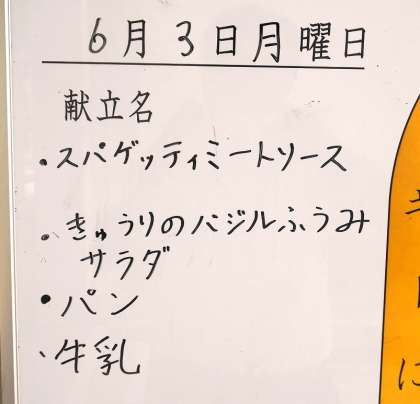 6月3日月曜日
献立名
・スパゲッティミートソース
・きゅうりのバジルふうみ
サラダ
・パン
・牛乳
に